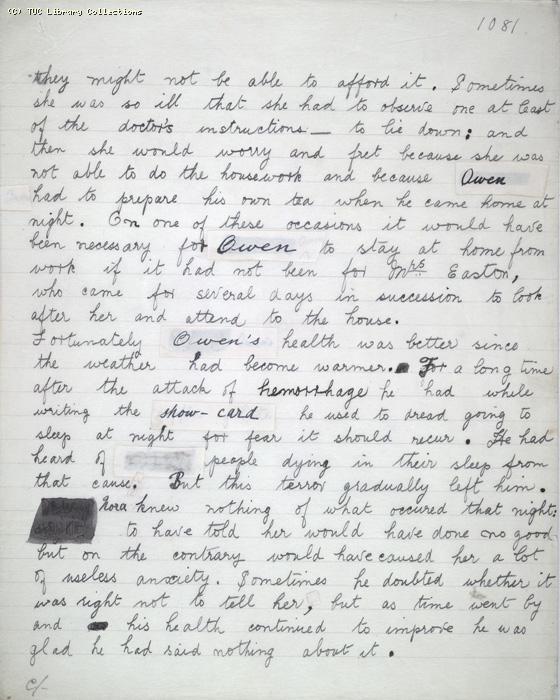 (C) TUC Library Collections
1081
they might not be able to afford it. Sometimes
she was so ill that she had to observe one at least
of the doctor's instructions — to lie down: and
then she would worry and fret because she was
not able to do the housework and because Owen
had to prepare his own tea when he came home at
night. On one of these occasions it would have
been necessary for Owen to stay at home from
work if it had not been for Mrs Easton,
who came for several days in succession to look
after her and attend to the house.
Fortunately Owen's health was better since
the weather had become warmer. For a long time
after the attack of hemorrhage he had while
writing the show-card he used to dread going to
sleep at night for fear it should recur. He had
heard of people dying in their sleep from
that cause. But this terror gradually left him.
Nora knew nothing of what occured that night:
to have told her would have done no good
but on the contrary would have caused her a lot
of useless anxiety. Sometimes he doubted whether it
was right not to tell her, but as time went by
and his health continued to improve he was
glad he had said nothing about it.
c/-